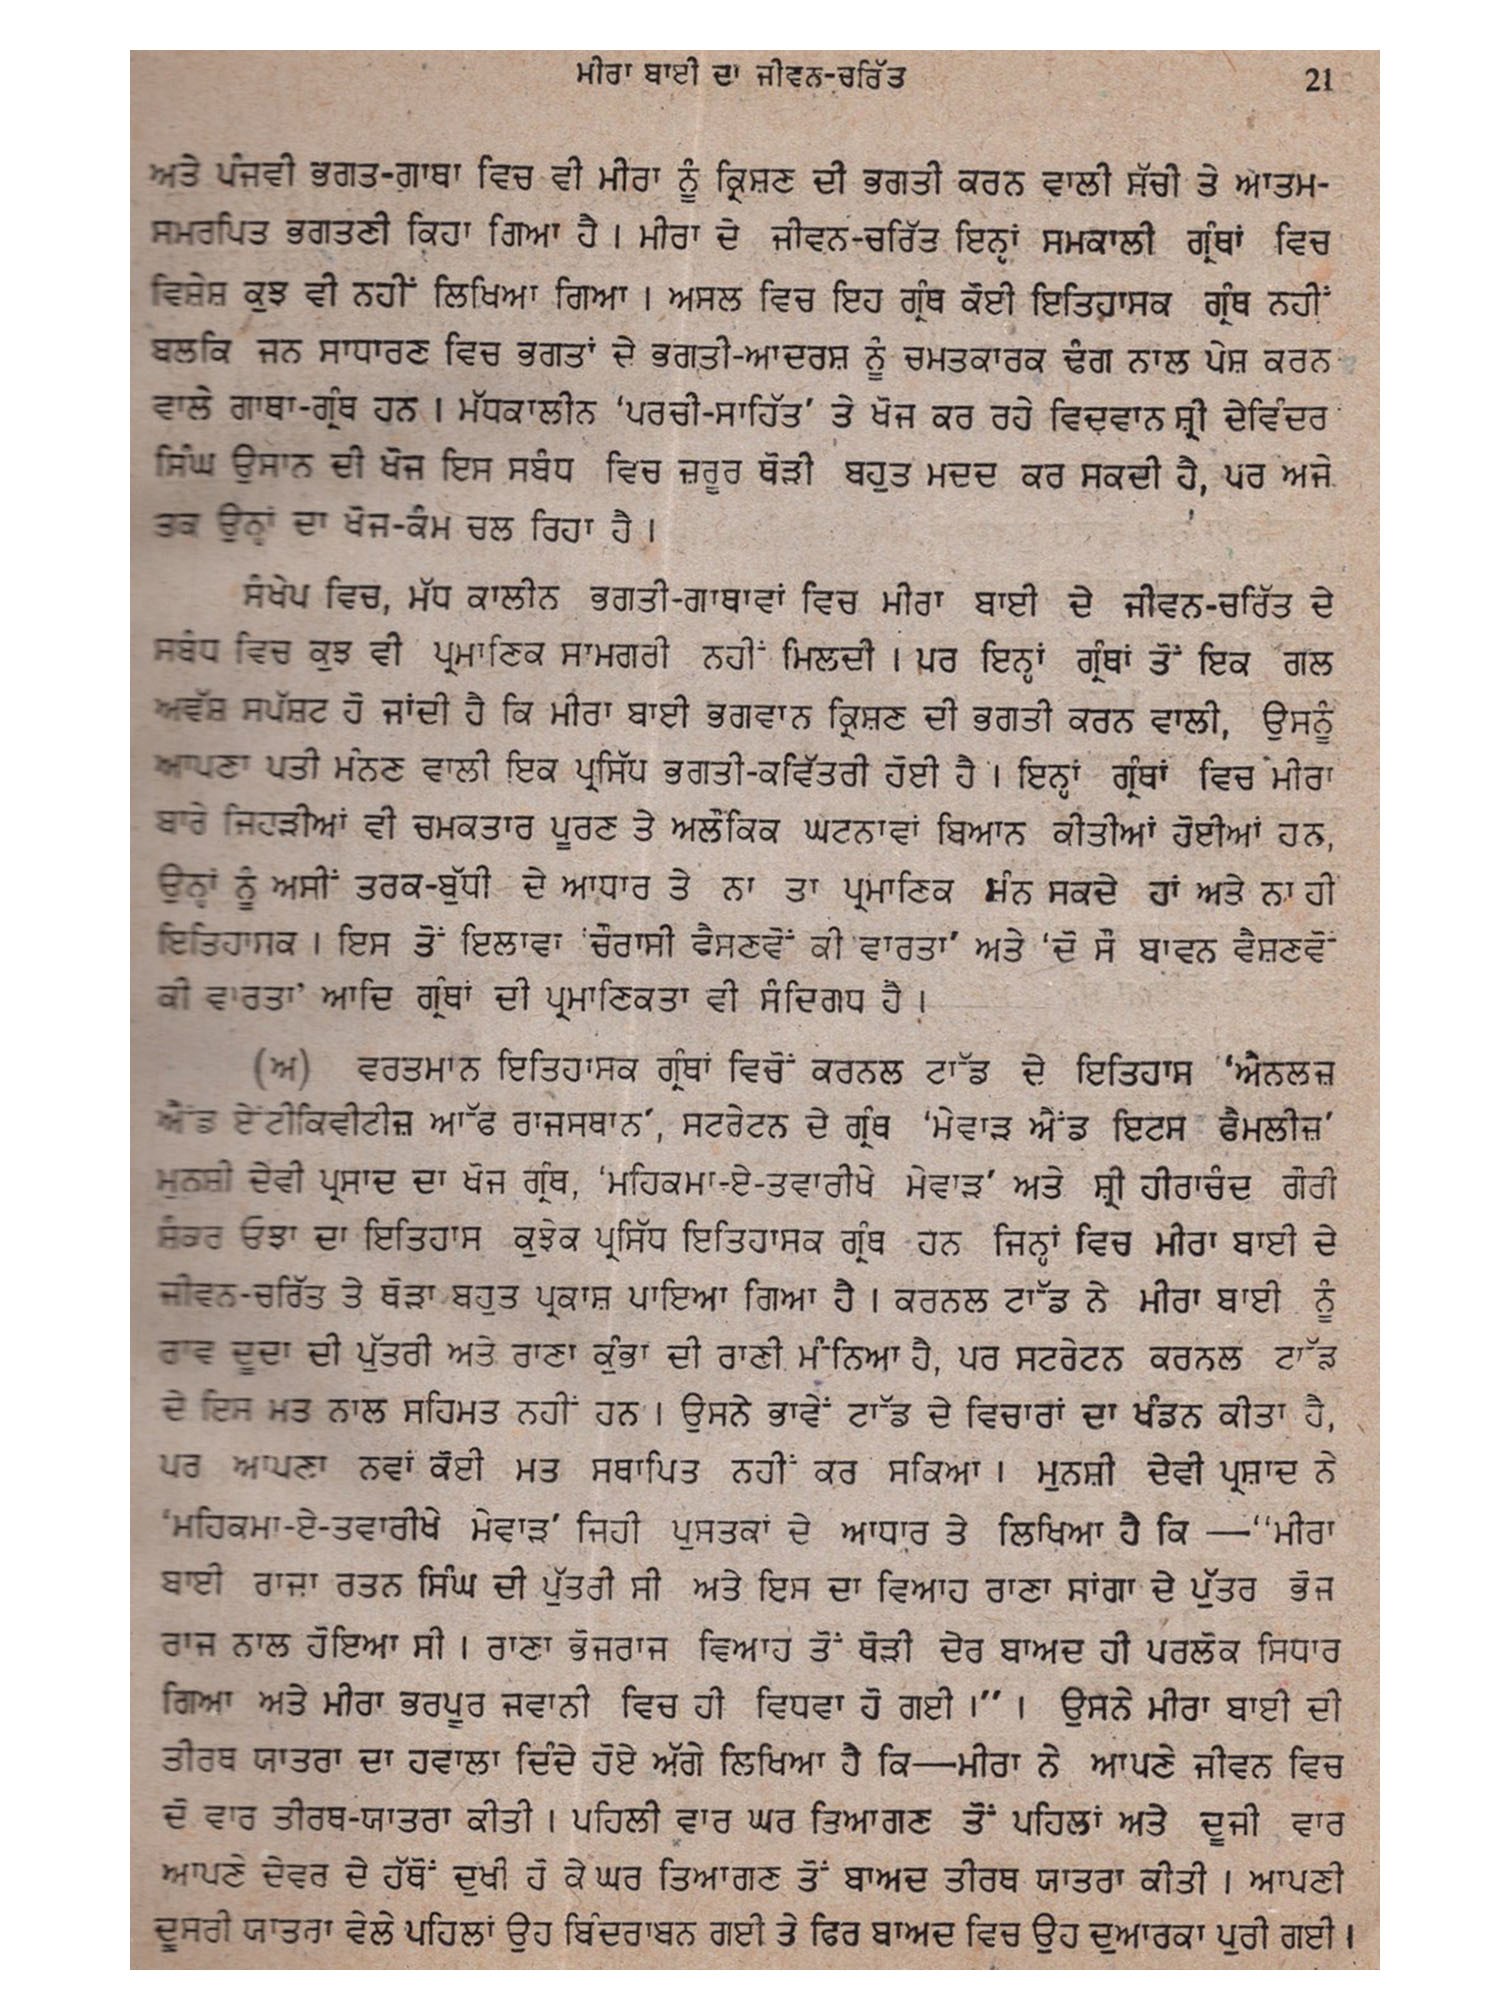 ਮੀਰਾ ਬਾਈ ਦਾ ਜੀਵਨ-ਚਰਿੱਤ 21
ਅਤੇ ਪੰਜਵੀ ਭਗਤ-ਗਾਥਾ ਵਿਚ ਵੀ ਮੀਰਾ ਨੂੰ ਕ੍ਰਿਸ਼ਣ ਦੀ ਭਗਤੀ ਕਰਨ ਵਾਲੀ ਸੱਚੀ ਤੇ ਆਤਮ-
ਸਮਰਪਿਤ ਭਗਤਣੀ ਕਿਹਾ ਗਿਆ ਹੈ । ਮੀਰਾ ਦੇ ਜੀਵਨ-ਚਰਿੱਤ ਇਨ੍ਹਾਂ ਸਮਕਾਲੀ ਗ੍ਰੰਥਾਂ ਵਿਚ
ਵਿਸ਼ੇਸ਼ ਕੁਝ ਵੀ ਨਹੀਂ ਲਿਖਿਆ ਗਿਆ । ਅਸਲ ਵਿਚ ਇਹ ਗ੍ਰੰਥ ਕੋਈ ਇਤਿਹਾਸਕ ਗ੍ਰੰਥ ਨਹੀਂ
ਬਲਕਿ ਜਨ ਸਾਧਾਰਣ ਵਿਚ ਭਗਤਾਂ ਦੇ ਭਗਤੀ-ਆਦਰਸ਼ ਨੂੰ ਚਮਤਕਾਰਕ ਢੰਗ ਨਾਲ ਪੇਸ਼ ਕਰਨ
ਵਾਲੇ ਗਾਥਾ-ਗ੍ਰੰਥ ਹਨ । ਮੱਧਕਾਲੀਨ ‘ਪਰਚੀ-ਸਾਹਿੱਤ’ ਤੇ ਖੋਜ ਕਰ ਰਹੇ ਵਿਦਵਾਨ ਸ਼੍ਰੀ ਦੇਵਿੰਦਰ
ਸਿੰਘ ਉਸਾਨ ਦੀ ਖੋਜ ਇਸ ਸਬੰਧ ਵਿਚ ਜ਼ਰੂਰ ਥੋੜੀ ਬਹੁਤ ਮਦਦ ਕਰ ਸਕਦੀ ਹੈ, ਪਰ ਅਜੇ
ਤਕ ਉਨ੍ਹਾਂ ਦਾ ਖੋਜ-ਕੰਮ ਚਲ ਰਿਹਾ ਹੈ ।
ਸੰਖੇਪ ਵਿਚ, ਮੱਧ ਕਾਲੀਨ ਭਗਤੀ-ਗਾਥਾਵਾਂ ਵਿਚ ਮੀਰਾ ਬਾਈ ਦੇ ਜੀਵਨ-ਚਰਿੱਤ ਦੇ
ਸਬੰਧ ਵਿਚ ਕੁਝ ਵੀ ਪ੍ਰਮਾਣਿਕ ਸਾਮਗਰੀ ਨਹੀਂ ਮਿਲਦੀ । ਪਰ ਇਨ੍ਹਾਂ ਗ੍ਰੰਥਾਂ ਤੋਂ ਇਕ ਗਲ
ਅਵੱਸ਼ ਸਪੱਸ਼ਟ ਹੋ ਜਾਂਦੀ ਹੈ ਕਿ ਮੀਰਾ ਬਾਈ ਭਗਵਾਨ ਕ੍ਰਿਸ਼ਣ ਦੀ ਭਗਤੀ ਕਰਨ ਵਾਲੀ, ਉਸਨੂੰ
ਆਪਣਾ ਪਤੀ ਮੰਨਣ ਵਾਲੀ ਇਕ ਪ੍ਰਸਿੱਧ ਭਗਤੀ-ਕਵਿੱਤਰੀ ਹੋਈ ਹੈ । ਇਨ੍ਹਾਂ ਗ੍ਰੰਥਾਂ ਵਿਚ ਮੀਰਾ
ਬਾਰੇ ਜਿਹੜੀਆਂ ਵੀ ਚਮਕਤਾਰ ਪੂਰਣ ਤੇ ਅਲੌਕਿਕ ਘਟਨਾਵਾਂ ਬਿਆਨ ਕੀਤੀਆਂ ਹੋਈਆਂ ਹਨ,
ਉਨ੍ਹਾਂ ਨੂੰ ਅਸੀਂ ਤਰਕ-ਬੁੱਧੀ ਦੇ ਆਧਾਰ ਤੇ ਨਾ ਤਾ ਪ੍ਰਮਾਣਿਕ ਮੰਨ ਸਕਦੇ ਹਾਂ ਅਤੇ ਨਾ ਹੀ
ਇਤਿਹਾਸਕ । ਇਸ ਤੋਂ ਇਲਾਵਾ ‘ਚੌਰਾਸੀ ਵੈਸਣਵੋਂ ਕੀ ਵਾਰਤਾ’ ਅਤੇ ‘ਦੋ ਸੌ ਬਾਵਨ ਵੈਸ਼ਣਵੋਂ
ਕੀ ਵਾਰਤਾ’ ਆਦਿ ਗ੍ਰੰਥਾਂ ਦੀ ਪ੍ਰਮਾਣਿਕਤਾ ਵੀ ਸੰਦਿਗਧ ਹੈ ।
(ਅ) ਵਰਤਮਾਨ ਇਤਿਹਾਸਕ ਗ੍ਰੰਥਾਂ ਵਿਚੋਂ ਕਰਨਲ ਟਾੱਡ ਦੇ ਇਤਿਹਾਸ ‘ਐਨਲਜ਼
ਐਂਡ ਏਂਟੀਕਿਵੀਟੀਜ਼ ਆੱਫ ਰਾਜਸਥਾਨ’, ਸਟਰੇਟਨ ਦੇ ਗ੍ਰੰਥ ‘ਮੇਵਾੜ ਐਂਡ ਇਟਸ ਫੈਮਲੀਜ਼’
ਮੁਨਸ਼ੀ ਦੇਵੀ ਪ੍ਰਸਾਦ ਦਾ ਖੋਜ ਗ੍ਰੰਥ, ‘ਮਹਿਕਮਾ-ਏ-ਤਵਾਰੀਖੇ ਮੇਵਾੜ’ ਅਤੇ ਸ਼੍ਰੀ ਹੀਰਾਚੰਦ ਗੌਰੀ
ਸ਼ੰਕਰ ਓਝਾ ਦਾ ਇਤਿਹਾਸ ਕੁਝੇਕ ਪ੍ਰਸਿੱਧ ਇਤਿਹਾਸਕ ਗ੍ਰੰਥ ਹਨ ਜਿਨ੍ਹਾਂ ਵਿਚ ਮੀਰਾ ਬਾਈ ਦੇ
ਜੀਵਨ-ਚਰਿੱਤ ਤੇ ਥੋੜਾ ਬਹੁਤ ਪ੍ਰਕਾਸ਼ ਪਾਇਆ ਗਿਆ ਹੈ । ਕਰਨਲ ਟਾੱਡ ਨੇ ਮੀਰਾ ਬਾਈ ਨੂੰ
ਰਾਵ ਦੂਦਾ ਦੀ ਪੁੱਤਰੀ ਅਤੇ ਰਾਣਾ ਕੁੰਭਾ ਦੀ ਰਾਣੀ ਮੰਨਿਆ ਹੈ, ਪਰ ਸਟਰੇਟਨ ਕਰਨਲ ਟਾੱਡ
ਦੇ ਇਸ ਮਤ ਨਾਲ ਸਹਿਮਤ ਨਹੀਂ ਹਨ । ਉਸਨੇ ਭਾਵੇਂ ਟਾੱਡ ਦੇ ਵਿਚਾਰਾਂ ਦਾ ਖੰਡਨ ਕੀਤਾ ਹੈ,
ਪਰ ਆਪਣਾ ਨਵਾਂ ਕੋਈ ਮਤ ਸਥਾਪਿਤ ਨਹੀਂ ਕਰ ਸਕਿਆ । ਮੁਨਸ਼ੀ ਦੇਵੀ ਪ੍ਰਸ਼ਾਦ ਨੇ
‘ਮਹਿਕਮਾ-ਏ-ਤਵਾਰੀਖੇ ਮੇਵਾੜ’ ਜਿਹੀ ਪੁਸਤਕਾਂ ਦੇ ਆਧਾਰ ਤੇ ਲਿਖਿਆ ਹੈ ਕਿ —‘‘ਮੀਰਾ
ਬਾਈ ਰਾਜਾ ਰਤਨ ਸਿੰਘ ਦੀ ਪੁੱਤਰੀ ਸੀ ਅਤੇ ਇਸ ਦਾ ਵਿਆਹ ਰਾਣਾ ਸਾਂਗਾ ਦੇ ਪੁੱਤਰ ਭੋਜ
ਰਾਜ ਨਾਲ ਹੋਇਆ ਸੀ । ਰਾਣਾ ਭੋਜਰਾਜ ਵਿਆਹ ਤੋਂ ਥੋੜੀ ਦੇਰ ਬਾਅਦ ਹੀ ਪਰਲੋਕ ਸਿਧਾਰ
ਗਿਆ ਅਤੇ ਮੀਰਾ ਭਰਪੂਰ ਜਵਾਨੀ ਵਿਚ ਹੀ ਵਿਧਵਾ ਹੋ ਗਈ ।’’ । ਉਸਨੇ ਮੀਰਾ ਬਾਈ ਦੀ
ਤੀਰਥ ਯਾਤਰਾ ਦਾ ਹਵਾਲਾ ਦਿੰਦੇ ਹੋਏ ਅੱਗੇ ਲਿਖਿਆ ਹੈ ਕਿ—ਮੀਰਾ ਨੇ ਆਪਣੇ ਜੀਵਨ ਵਿਚ
ਦੋ ਵਾਰ ਤੀਰਥ-ਯਾਤਰਾ ਕੀਤੀ । ਪਹਿਲੀ ਵਾਰ ਘਰ ਤਿਆਗਣ ਤੋਂ ਪਹਿਲਾਂ ਅਤੇ ਦੂਜੀ ਵਾਰ
ਆਪਣੇ ਦੇਵਰ ਦੇ ਹੱਥੋਂ ਦੁਖੀ ਹੋ ਕੇ ਘਰ ਤਿਆਗਣ ਤੋਂ ਬਾਅਦ ਤੀਰਥ ਯਾਤਰਾ ਕੀਤੀ । ਆਪਣੀ
ਦੂਸਰੀ ਯਾਤਰਾ ਵੇਲੇ ਪਹਿਲਾਂ ਉਹ ਬਿੰਦਰਾਬਨ ਗਈ ਤੇ ਫਿਰ ਬਾਅਦ ਵਿਚ ਉਹ ਦੁਆਰਕਾ ਪੁਰੀ ਗਈ ।